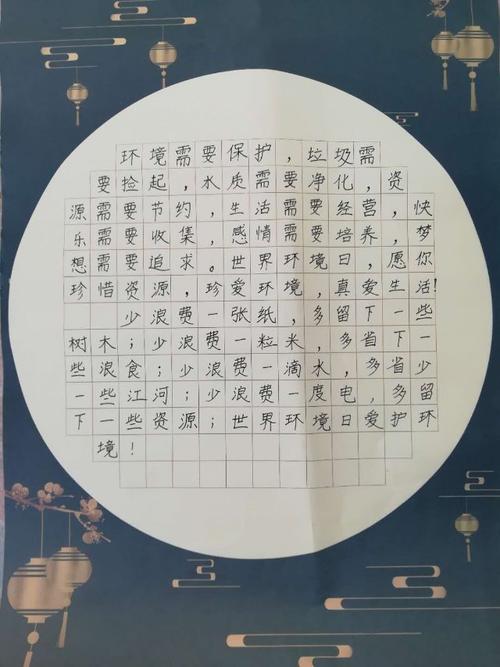 环境需要保护，垃圾需
要捡起，水质需要净化，资
源需要节约，生活需要经营，快
乐需要收集，感情需要培养，梦
想需要追求。世界环境日，愿你
珍惜资源，珍爱环境，真爱生活！
少浪费一张纸，多留下一些
树木；少浪费一粒米，多省下一
些浪食；少浪费一滴水，多省少
一些江河；少浪费一度电，多留
下一些资源；世界环境日爱护环
境！